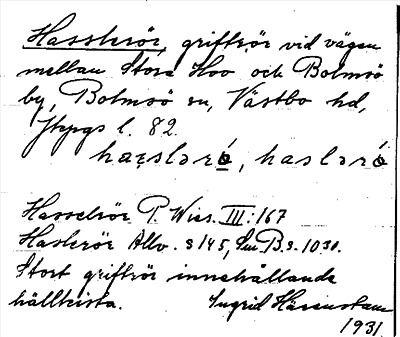 Hasslerör, griftrör vid vägen
mellan Stora Hov och Bolmsö
by, Bolmsö sn, Västbo hd,
Jkpgs l. 82.
hasslerö, haslərö
Hasselrör P. Wies. III:167
Haslerör Allv. s 145, Sm. B. s. 1030.
Stort griftrör innehållande
hällkista. Ingrid
1931.